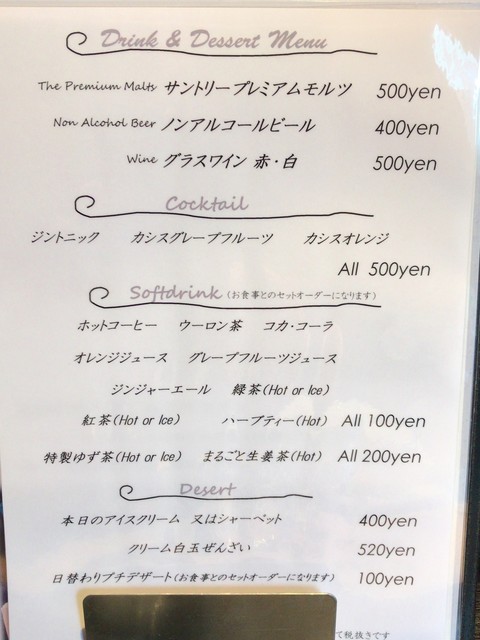 Drink & Dessert Menu
The Premium Malts サントリープレミアムモルツ 500yen
Non Alcohol Beer ノンアルコールビール 400yen
Wine グラスワイン 赤・白 500yen
Cocktail
ジントニック カシスグレープフルーツ カシスオレンジ
All 500yen
Softdrink (お食事とのセットオーダーになります)
ホットコーヒー ウーロン茶 コカ・コーラ
オレンジジュース グレープフルーツジュース
ジンジャーエール 緑茶(Hot or Ice)
紅茶(Hot or Ice) ハーブティー(Hot) All 100yen
特製ゆず茶(Hot or Ice) まるごと生姜茶(Hot) All 200yen
Desert
本日のアイスクリーム 又はシャーベット 400yen
クリーム白玉ぜんざい 520yen
日替わりプチデザート(お食事とのセットオーダーになります) 100yen
て税抜きです